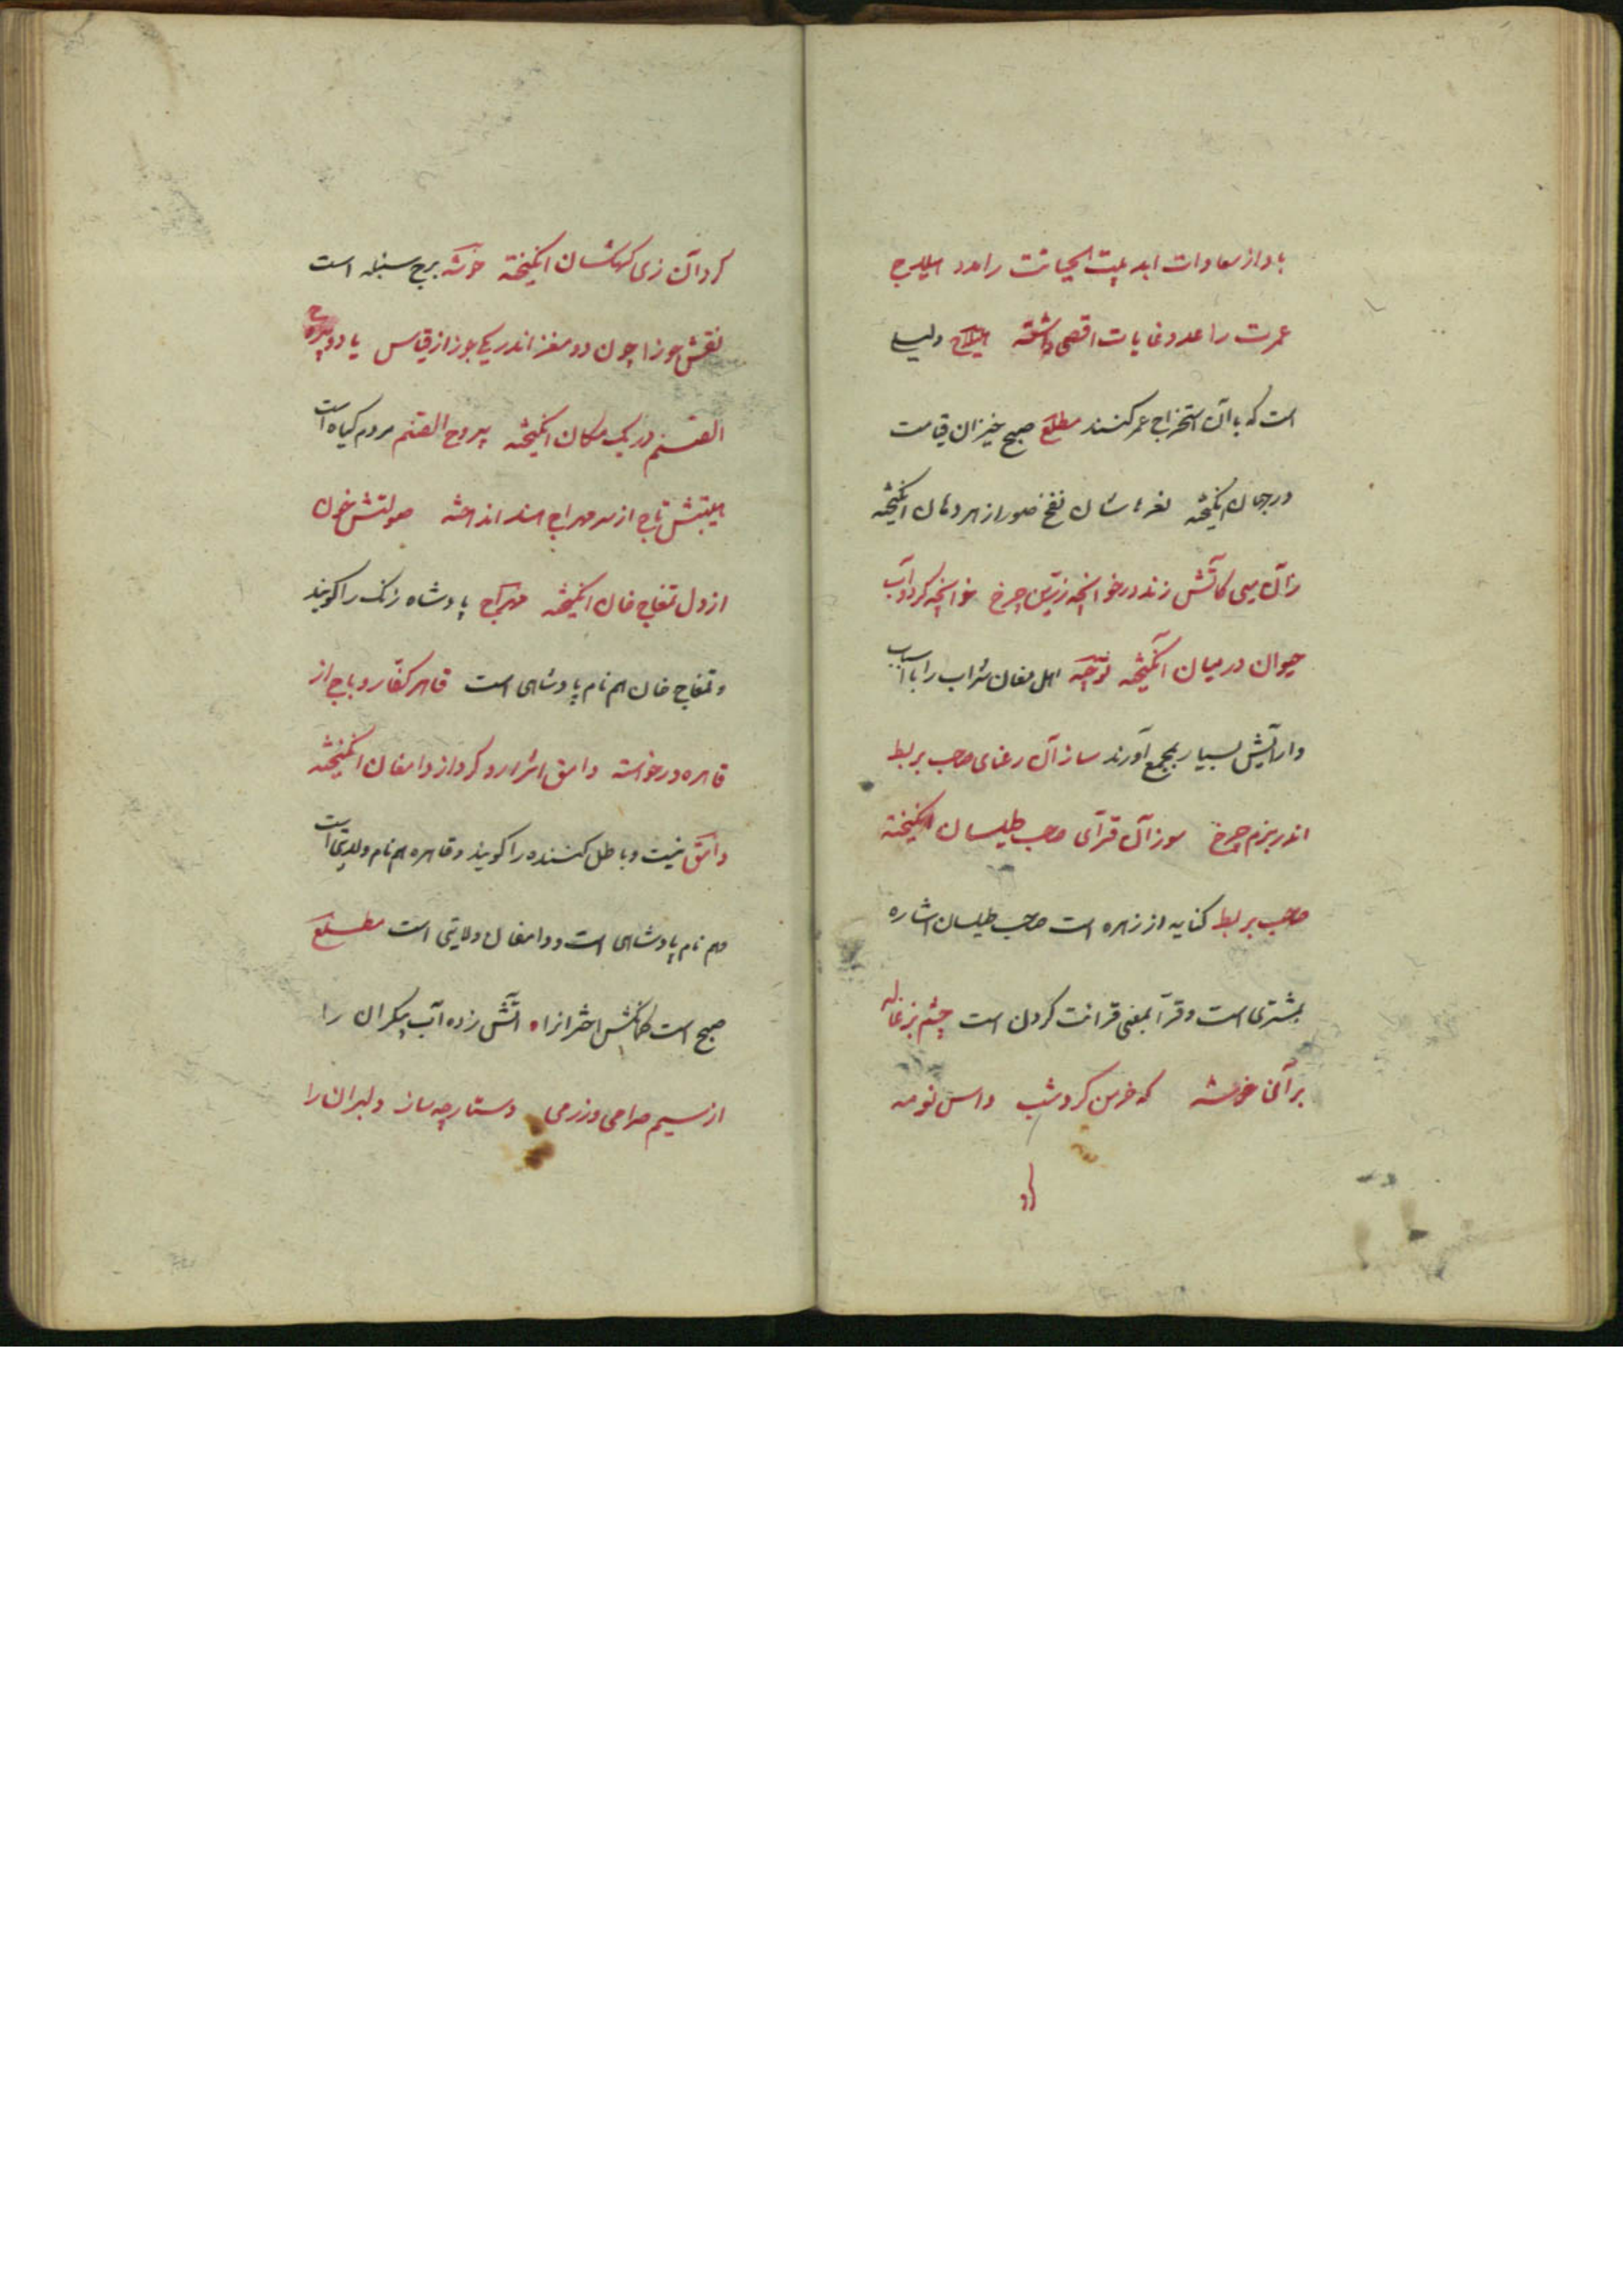 باد از سعادات ابد بیت الحیاتت را مدد هیلاج
عمرت را عدد غایات اقصی داشته هیلاج دلیلی
است که بآن استخراج عمر کنند مطلع صبح خیزان قیامت
در جهان انگیخته نعرهاشان نفخ صور از هر دهان انگیخته
زان می کاتش زند در خوانچه زرین چرخ خوانچه کرد و آب
حیوان در میان انگیخته خوانچه اهل مغان شراب را با اسباب
و آرایش بسیار بجمع آورند ساز آن رعنای صاحب بربط
اندر بزم چرخ سوز آن قرآی صاحب طیلسان انگیخته
صاحب بربط کنایه از زهره است صاحب طیلسان اشاره
بمشتری است و قرآ بمعنی قرائت کردن است چشم بزغاله
بر آن خوشه که خرمن کرد شب داس نو مه
کرد
کرد آن زی کهکشان انگیخته خوشه برج سنبله است
نقش جوزا چون دو مغز اندر یکی جوز از قیاس یا دو یبروح
الصنم در یک مکان انگیخته یبروح الصنم مردم گیاه است
هیبتش تاج از سر مهراج هند انداخته صولتش خون
از دل تمغاج خان انگیخته مهراج پادشاه زنگ را گویند
و تمغاج خان هم نام پادشاهی است قاهر کفار و باج از
قاهره درخواسته دامغ اشرار و گرد از دامغان انگیخته
دامغ نیست و باطل کننده را گویند و قاهره هم نام ولایتی است
هم نام پادشاهی است و دامغان ولایتی است مطلع
صبح است کمانکش اختران را آتش زده آب پیکران را
از سیم صراحی و زر می دستارچه ساز دلبران را